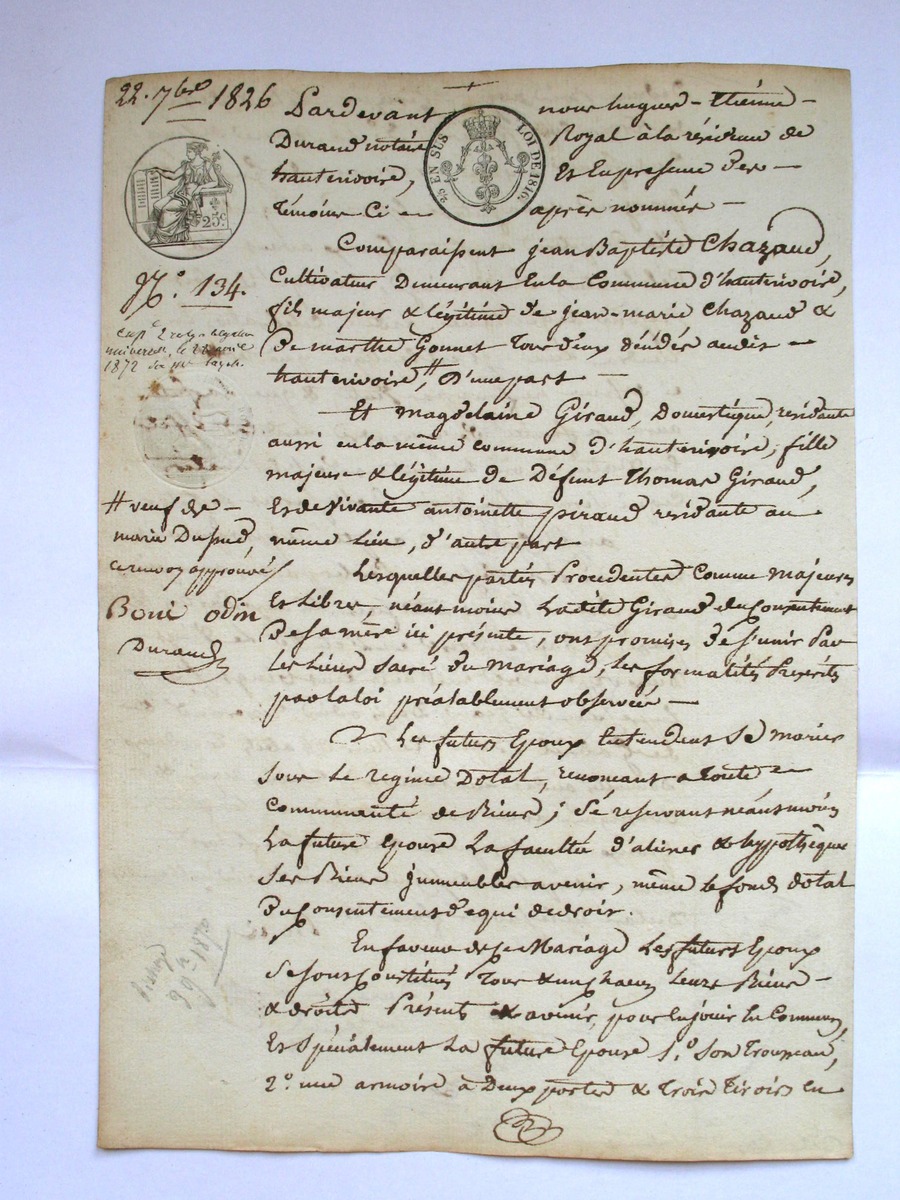 22. 7bre 1826
Pardevant nous hugues-Etienne
Durand notaire Royal à la résidence de
hauterivoire, Et En presence des
témoins Ci après nommés
25 EN SUS
LOI DE 1816.
25c.
N.o 134.
1872
Comparaissent jean Baptiste Chazaud,
Cultivateur Demeurant En la Commune d'hauterivoire,
fils majeur & légitime de jean-marie Chazaud &
de marthe Gonnet tous deux décédés audit
hauterivoire, # D'une part
Et magdelaine Giraud, Domestique, residante
aussi en la même commune d'hauterivoire, fille
majeure & légitime de Défunt Thomas Giraud,
Et de Vivante antoinette piraud residante au
même Lieu, d'autre part
# veuf de
marie Dupud,
renvoy approuvé
Boni odin
Durand
Lesquelles parties Procedantes Comme majeures
Et Libres, néantmoins Ladite Giraud du Consentement
de sa mère ici présente, ont promises de s'unir Par
Les Liens sacré du mariage, les formalités Prescrites
par la loi préalablement observées
Les futurs Epoux Entendent Se marier
sous Le regime Dotal, renoncant a toute
Communauté de Biens; Se reservant néantmoins
La future Epouse La faculté d'aliéner & hypothèquer
Ses Biens jmmeubles avenir, même le fond dotal
du Consentement de qui de droit.
En faveur de ce Mariage Les futurs Epoux
Se sont Constitués Tous & un chacun Leurs Biens
& droits Présents & avenir, pour En jouir En Commun,
Et Spécialement La future Epouse 1.o Son Trousseau,
2.o une armoire à Deux portes & trois Tiroirs En